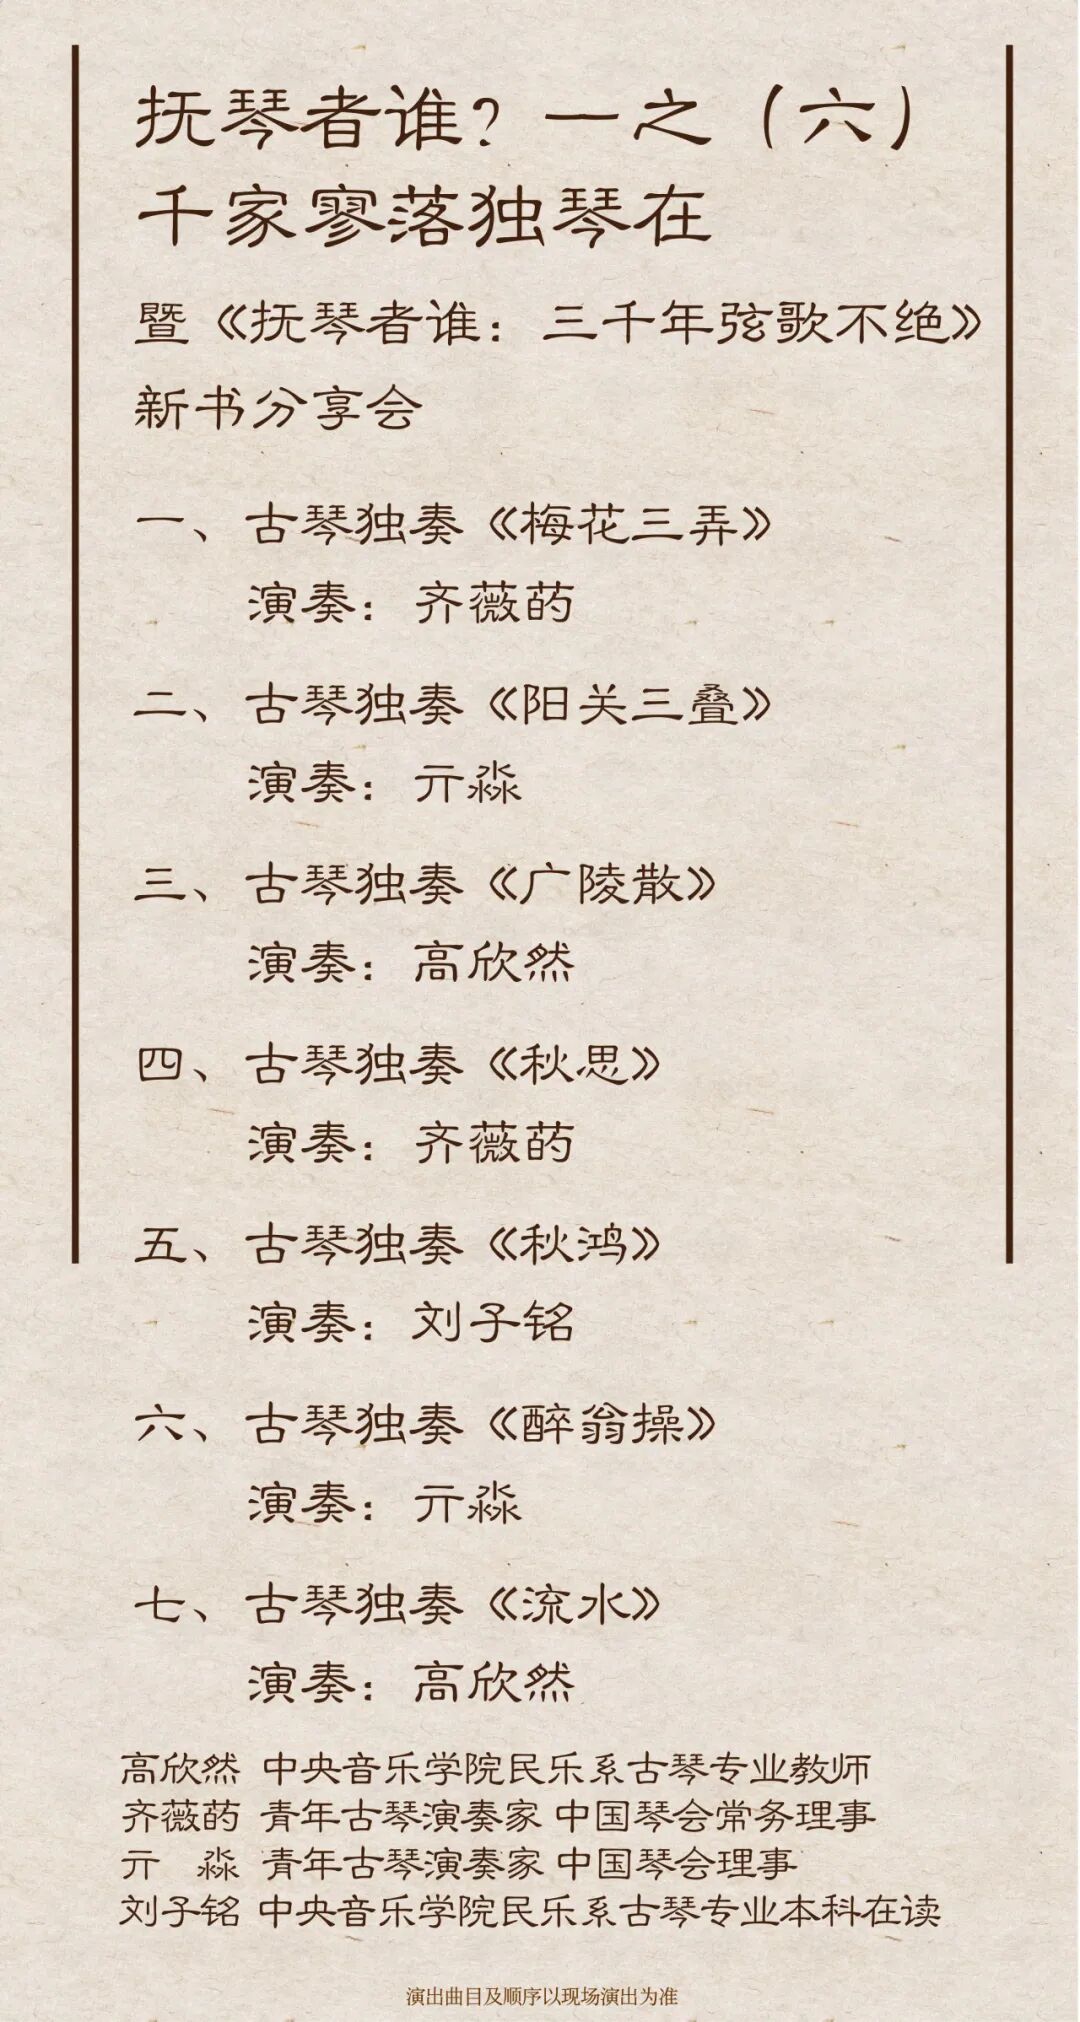 抚琴者谁？一之（六）
千家寥落独琴在
暨《抚琴者谁：三千年弦歌不绝》
新书分享会
一、古琴独奏《梅花三弄》
演奏：齐薇药
二、古琴独奏《阳关三叠》
演奏：亓淼
三、古琴独奏《广陵散》
演奏：高欣然
四、古琴独奏《秋思》
演奏：齐薇药
五、古琴独奏《秋鸿》
演奏：刘子铭
六、古琴独奏《醉翁操》
演奏：亓淼
七、古琴独奏《流水》
演奏：高欣然
高欣然 中央音乐学院民乐系古琴专业教师
齐薇药 青年古琴演奏家 中国琴会常务理事
亓 淼 青年古琴演奏家 中国琴会理事
刘子铭 中央音乐学院民乐系古琴专业本科在读
演出曲目及顺序以现场演出为准